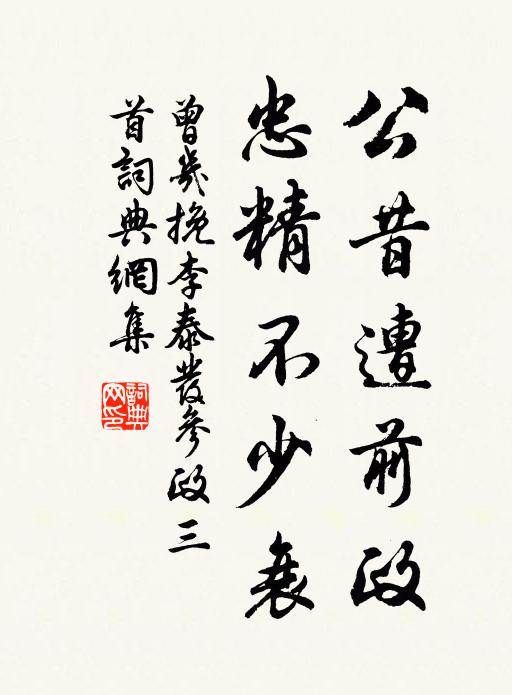 公昔遭前政
忠精不少衰
曾幾挽李泰發參政三
首詞典網集
詞典网印